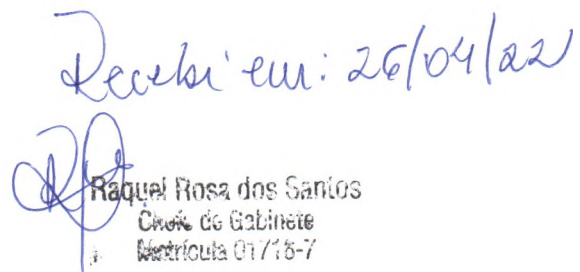 Recebi em: 26/04/22
Raquel Rosa dos Santos
Chefe de Gabinete
Matrícula 01716-7